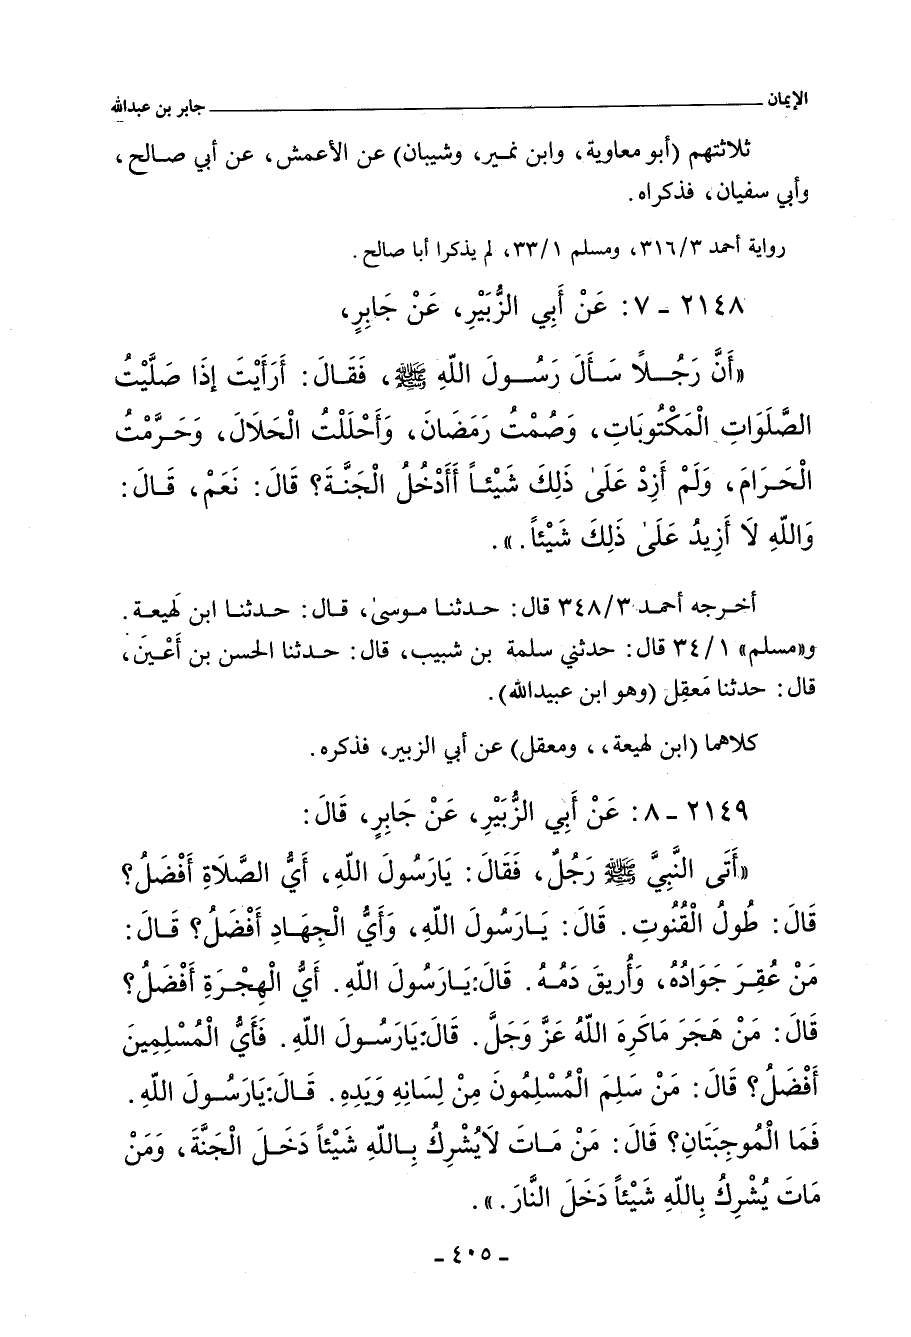 الإيمان ـــــــــــــــــــــــــــــــــ جابر بن عبدالله
ثلاثتهم (أبو معاوية، وابن نمير، وشيبان) عن الأعمش، عن أبي صالح،
وأبي سفيان، فذكراه.
رواية أحمد ٣١٦/٣، ومسلم ٣٣/١، لم يذكرا أبا صالح.
٢١٤٨ ـ ٧: عَنْ أَبِي الزُّبَيْرِ، عَنْ جَابِرٍ،
«أَنَّ رَجُلاً سَأَلَ رَسُولَ اللهِ ﷺ، فَقَالَ: أَرَأَيْتَ إِذَا صَلَّيْتُ
الصَّلَوَاتِ الْمَكْتُوبَاتِ، وَصُمْتُ رَمَضَانَ، وَأَحْلَلْتُ الْحَلَالَ، وَحَرَّمْتُ
الْحَرَامَ، وَلَمْ أَزِدْ عَلَىٰ ذَلِكَ شَيْئاً أَأَدْخُلُ الْجَنَّةَ؟ قَالَ: نَعَمْ، قَالَ:
وَاللهِ لَا أَزِيدُ عَلَىٰ ذَلِكَ شَيْئاً.».
أخرجه أحمد ٣٤٨/٣ قال: حدثنا موسىٰ، قال: حدثنا ابن لَهيعة.
و«مسلم» ٣٤/١ قال: حدثني سلمة بن شبيب، قال: حدثنا الحسن بن أَعْيَن،
قال: حدثنا مَعقِل (وهو ابن عبيدالله).
كلاهما (ابن لهيعة،، ومعقل) عن أبي الزبير، فذكره.
٢١٤٩ ـ ٨: عَنْ أَبِي الزُّبَيْرِ، عَنْ جَابِرٍ، قَالَ:
«أَتَى النَّبِيَّ ﷺ رَجُلٌ، فَقَالَ: يَارَسُولَ اللهِ، أَيُّ الصَّلَاةِ أَفْضَلُ؟
قَالَ: طُولُ الْقُنُوتِ. قَالَ: يَارَسُولَ اللهِ، وَأَيُّ الْجِهَادِ أَفْضَلُ؟ قَالَ:
مَنْ عُقِرَ جَوَادُهُ، وَأُرِيقَ دَمُهُ. قَالَ:يَارَسُولَ اللهِ. أَيُّ الْهِجْرَةِ أَفْضَلُ؟
قَالَ: مَنْ هَجَرَ مَاكَرِهَ اللهُ عَزَّ وَجَلَّ. قَالَ:يَارَسُولَ اللهِ. فَأَيُّ الْمُسْلِمِينَ
أَفْضَلُ؟ قَالَ: مَنْ سَلِمَ الْمُسْلِمُونَ مِنْ لِسَانِهِ وَيَدِهِ. قَالَ:يَارَسُولَ اللهِ.
فَمَا الْمُوجِبَتَانِ؟ قَالَ: مَنْ مَاتَ لَايُشْرِكُ بِاللهِ شَيْئاً دَخَلَ الْجَنَّةَ، وَمَنْ
مَاتَ يُشْرِكُ بِاللهِ شَيْئاً دَخَلَ النَّارَ.».
ـ ٤٠٥ ـ